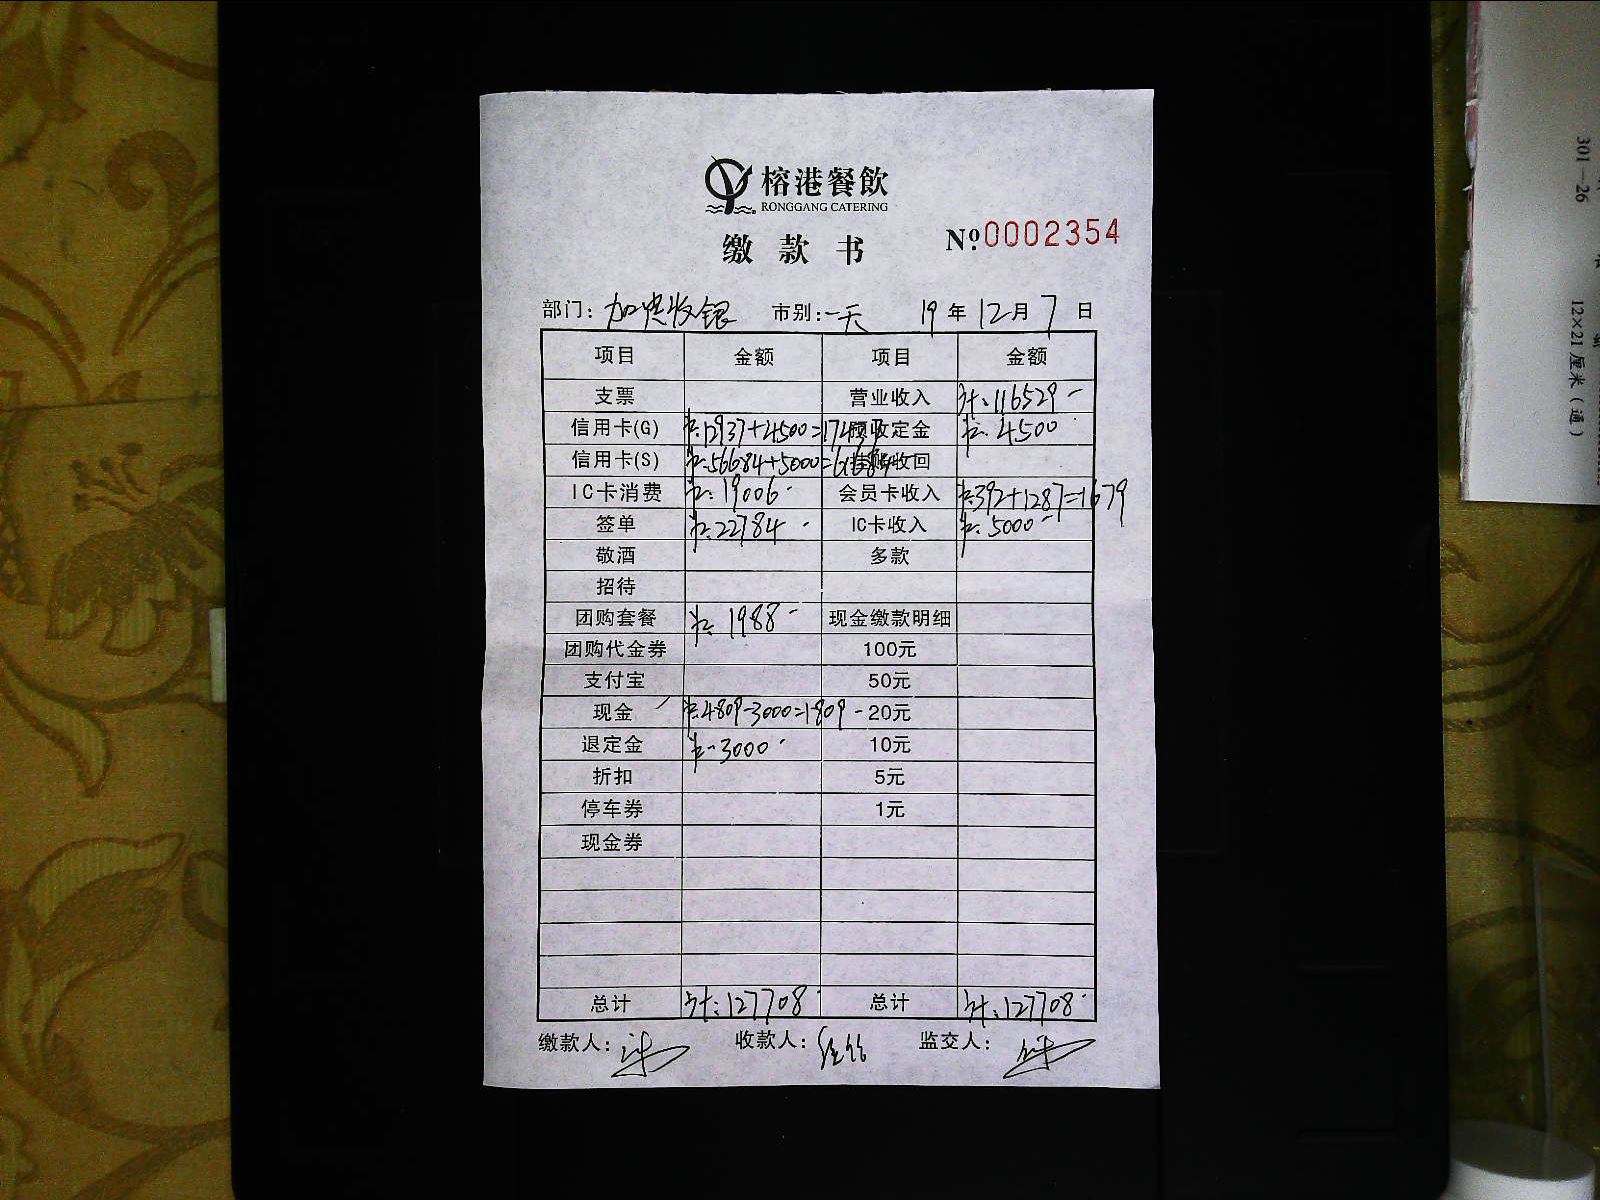 榕港餐飲
RONGGANG CATERING
缴款书 №0002354
部门: 加 收银 市别: 一天 19 年 12 月 7 日
项目 金额 项目 金额
支票 营业收入 计:116529-
信用卡(G) 12937+4500=17437 预收定金 4500-
信用卡(S) 56684+5000=61684- 挂账收回
IC卡消费 19006- 会员卡收入 392+1287=1679
签单 22784- IC卡收入 5000-
敬酒 多款
招待
团购套餐 1988- 现金缴款明细
团购代金券 100元
支付宝 50元
现金 4809-3000=1809- 20元
退定金 3000- 10元
折扣 5元
停车券 1元
现金券
总计 计:127708- 总计 计:127708-
缴款人: 收款人: 监交人:
301—26
12×21 厘米（通）